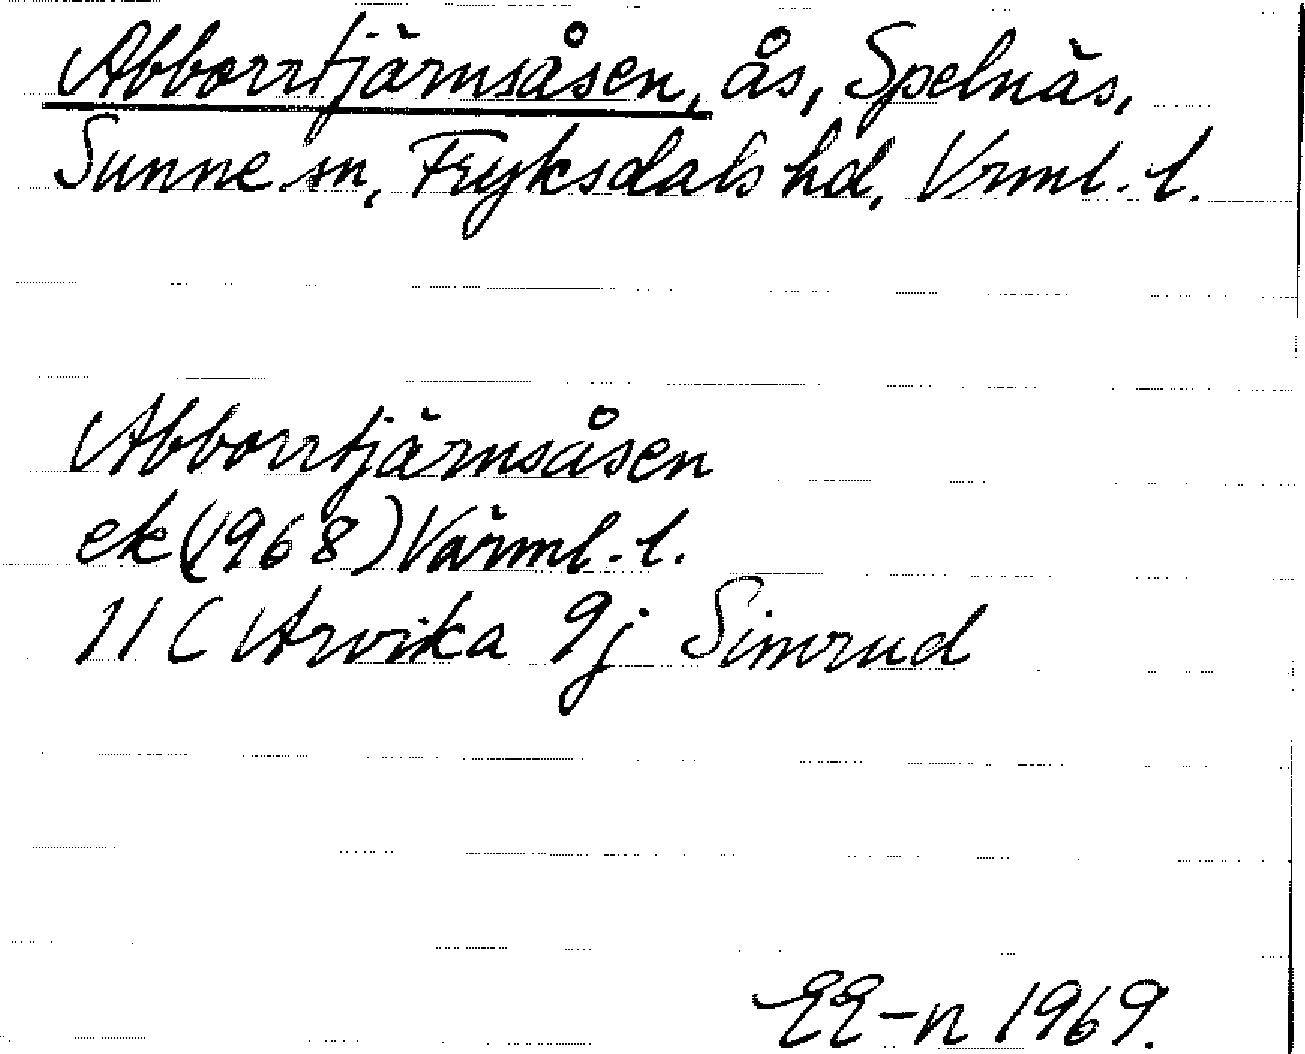 Abborrtjärnsåsen, ås, Spelnäs,
Sunne sn, Fryksdals hd, Vrml. l.
Abborrtjärnsåsen
ek (1968) Värml. l.
11 C Arvika 9j Simrud
EE-n 1969.